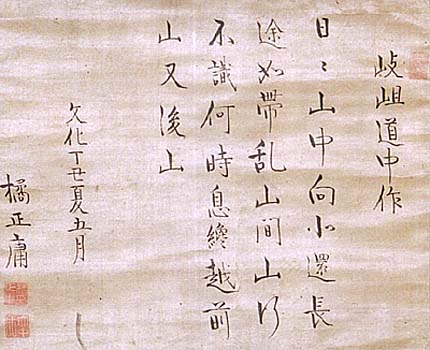 岐岨道中作
日〻山中向小還長
途如帶乱山間山行
不識何時息纔越前
山又後山
文化丁丑夏五月
橘正庸